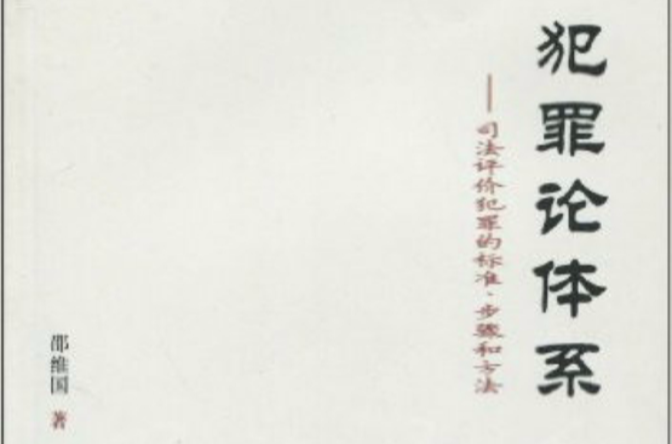 犯罪论体系
——司法评价犯罪的标准·步骤和方法
邵维国 著